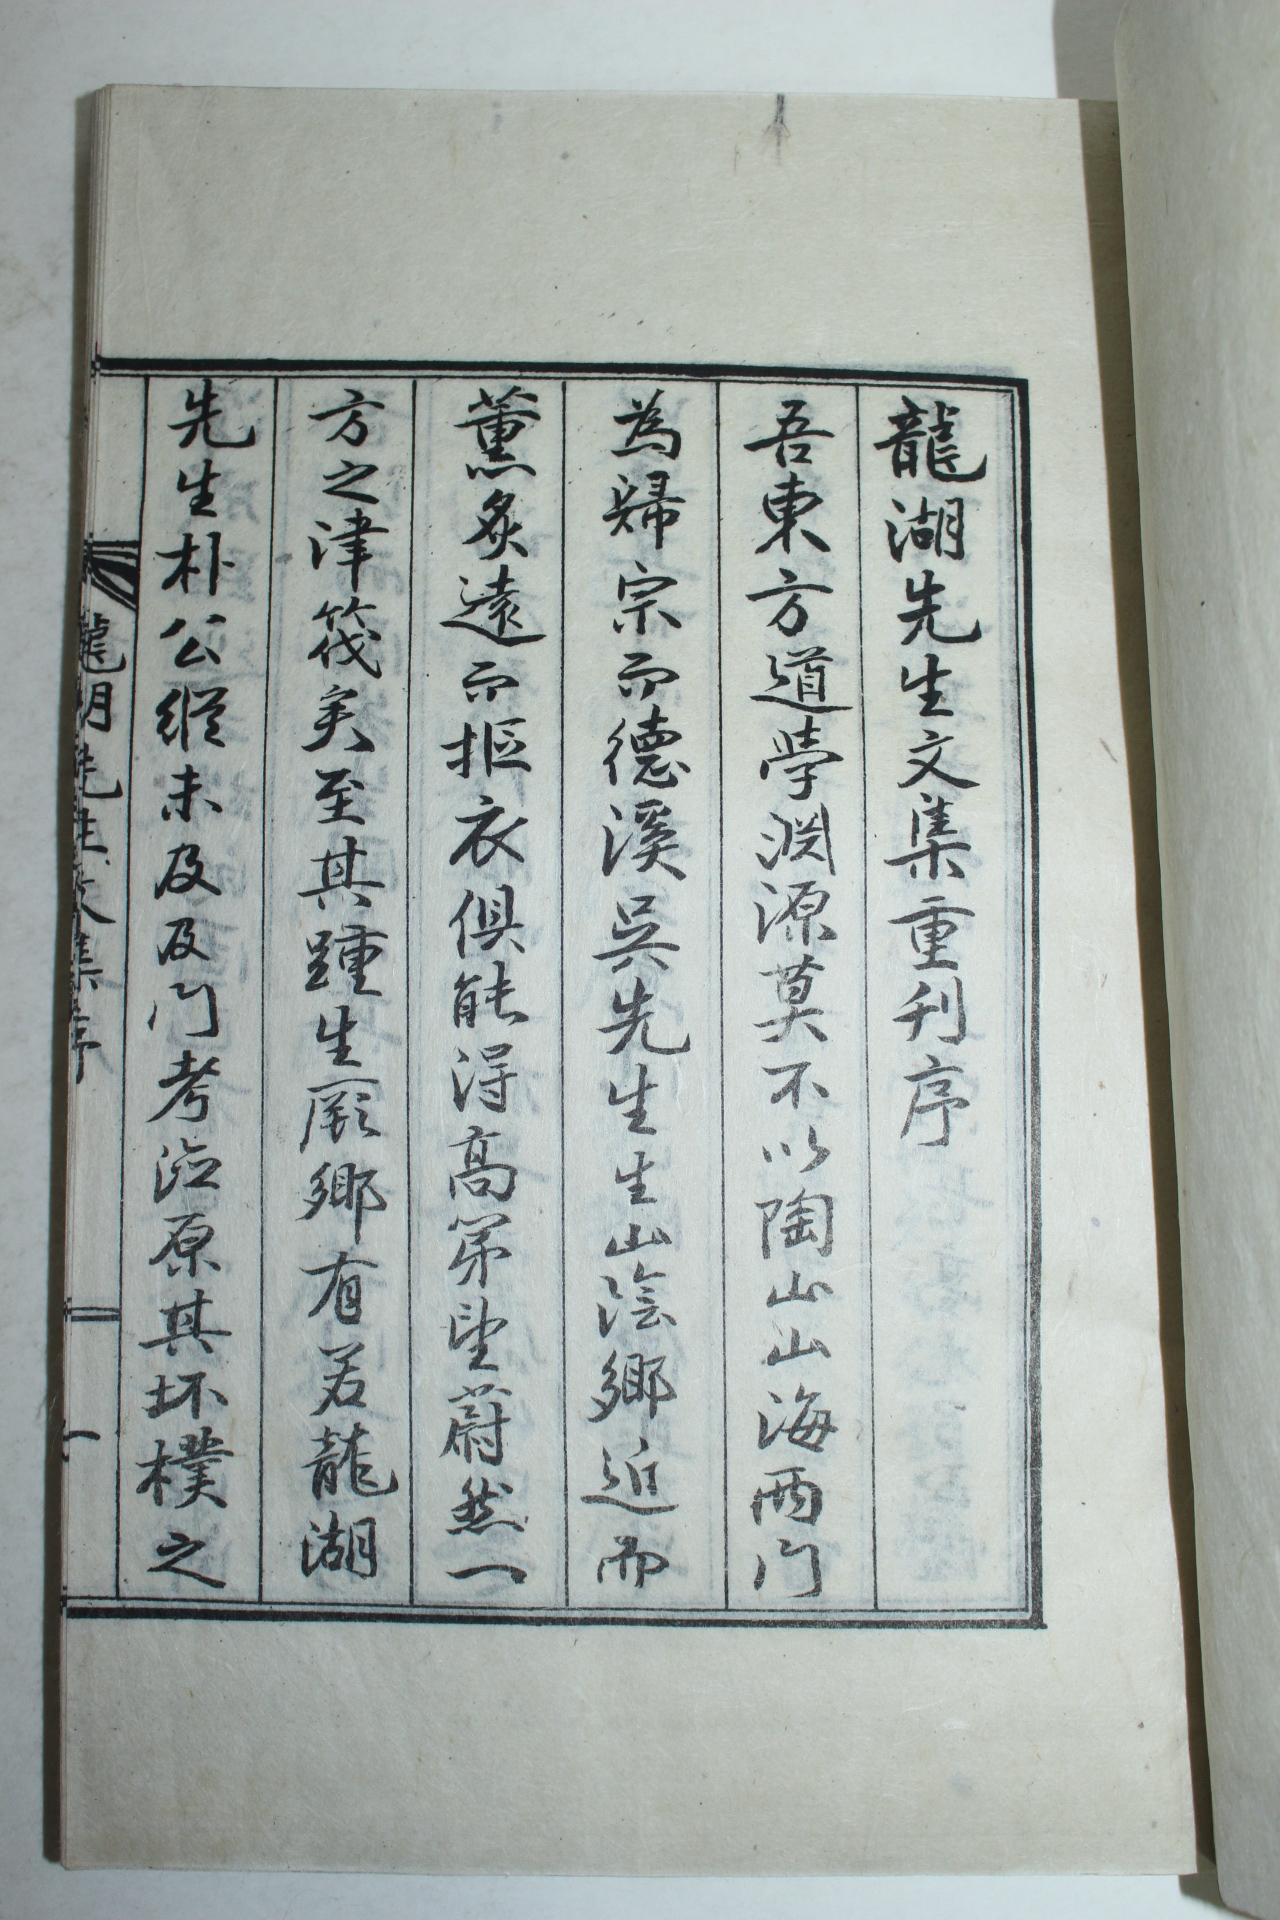 龍湖先生文集重刊序
吾東方道學淵源莫不以陶山山海兩門
為歸宗而德溪吳先生生山陰鄉近而
薰炙遠而摳衣俱能得高弟望蔚然一
方之津筏矣至其踵生厥鄉有若龍湖
先生朴公縱未及及門考涖原其坯樸之
龍湖先生文集序
一